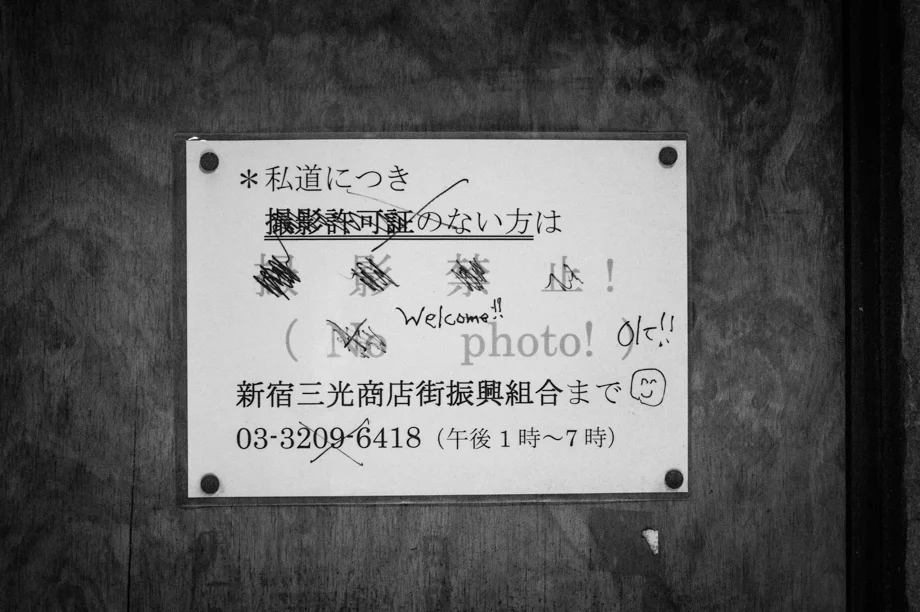 ＊私道につき
撮影許可証のない方は
撮影禁止！
Welcome!!
（No photo!）
新宿三光商店街振興組合まで
03-3209-6418（午後1時～7時）